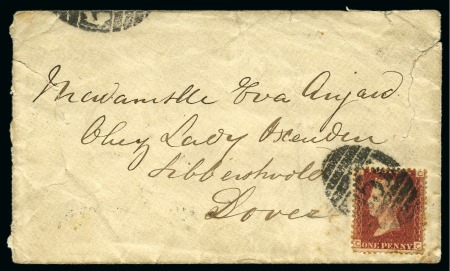 Madamslle Eva Anjard
Chez Lady Oxenden
Sibbertswold
Dover
C G
ONE PENNY